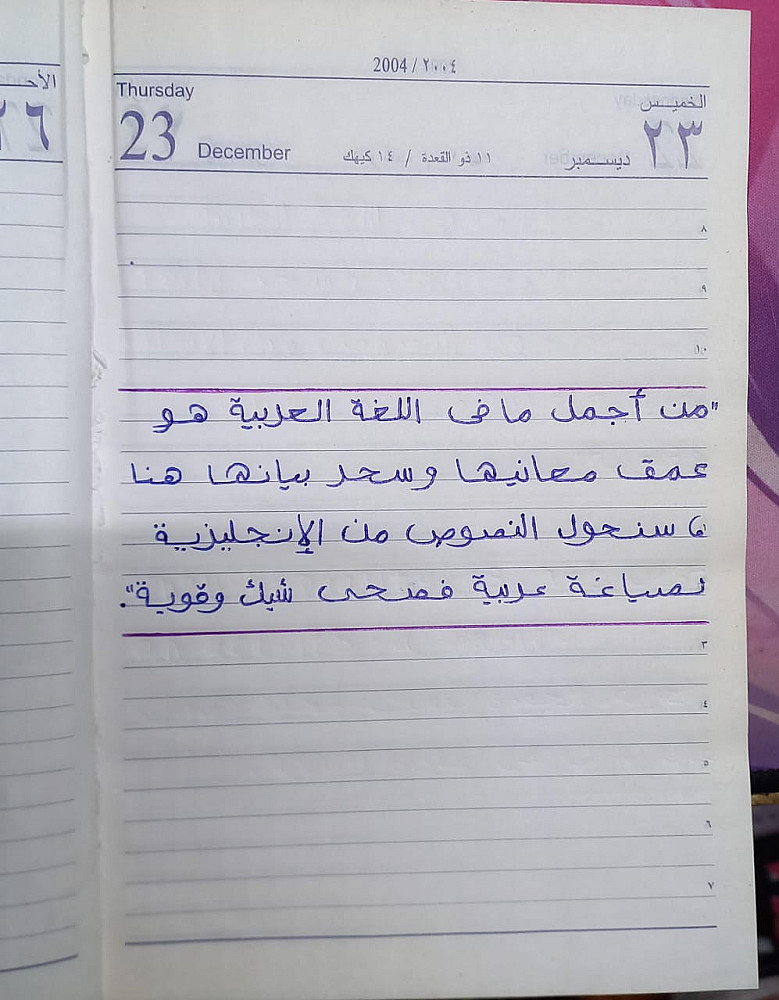 2004 / ٢٠٠٤
Thursday
الخميس
23 December
١١ ذو القعدة / ١٤ كيهك
٢٣ ديسمبر
٨
٩
١٠
"من أجمل ما فى اللغة العربية هو
عمق معانيها وسحر بيانها هنا
، سنحول النصوص من الإنجليزية
لصياغة عربية فصحى شيك وقوية".
٣
٤
٥
٦
٧
الأحـ
٢٦